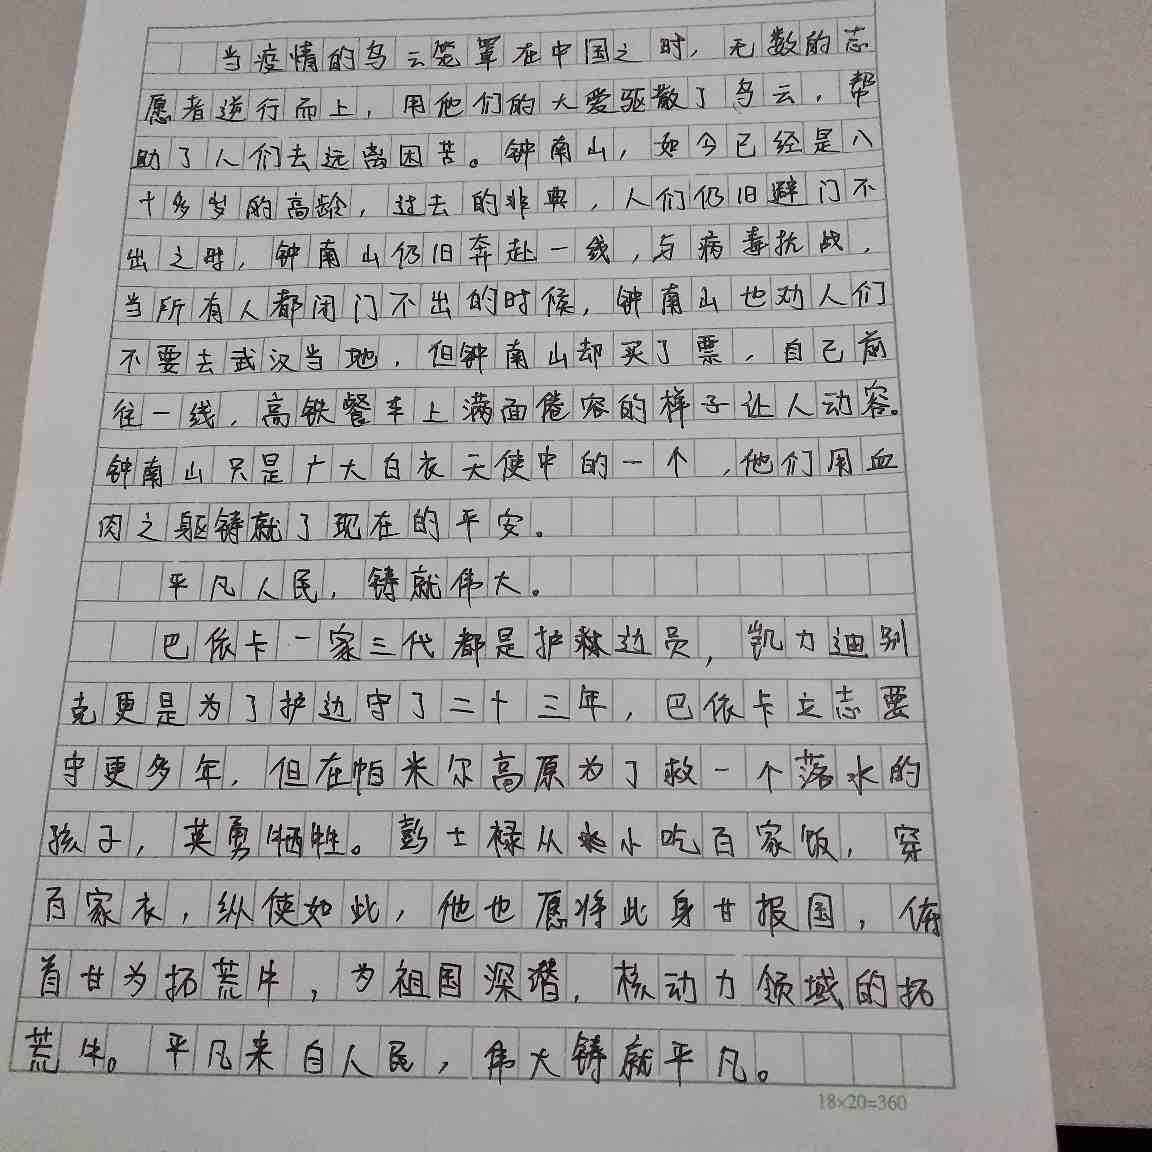 当疫情的乌云笼罩在中国之时，无数的志
愿者逆行而上，用他们的大爱驱散了乌云，帮
助了人们去远离困苦。钟南山，如今已经是八
十多岁的高龄，过去的非典，人们仍旧避门不
出之时，钟南山仍旧奔赴一线，与病毒抗战，
当所有人都闭门不出的时候，钟南山也劝人们
不要去武汉当地，但钟南山却买了票，自己前
往一线，高铁餐车上满面倦容的样子让人动容。
钟南山只是广大白衣天使中的一个，他们用血
肉之躯铸就了现在的平安。
平凡人民，铸就伟大。
巴依卡一家三代都是护边员，凯力迪别
克更是为了护边守了二十三年，巴依卡立志要
守更多年，但在帕米尔高原为了救一个落水的
孩子，英勇牺牲。彭士禄从小吃百家饭，穿
百家衣，纵使如此，他也愿将此身甘报国，俯
首甘为拓荒牛，为祖国深潜，核动力领域的拓
荒牛。平凡来自人民，伟大铸就平凡。
18×20=360